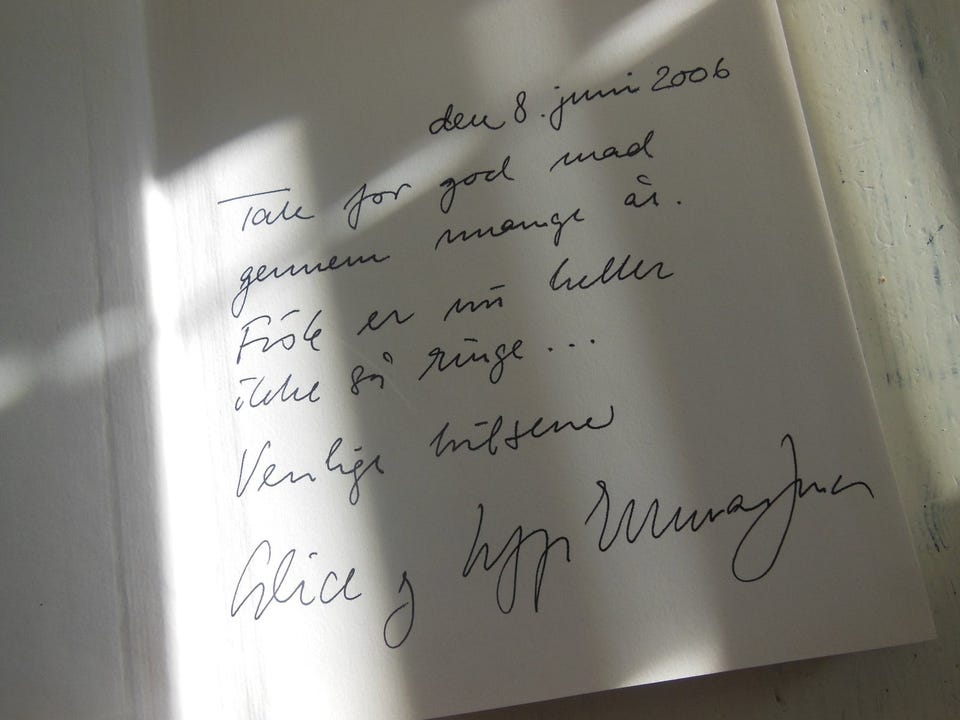 den 8. juni 2006
Tak for god mad
gennem mange år.
Fisk er nu heller
ikke så ringe...
Venlige hilsener